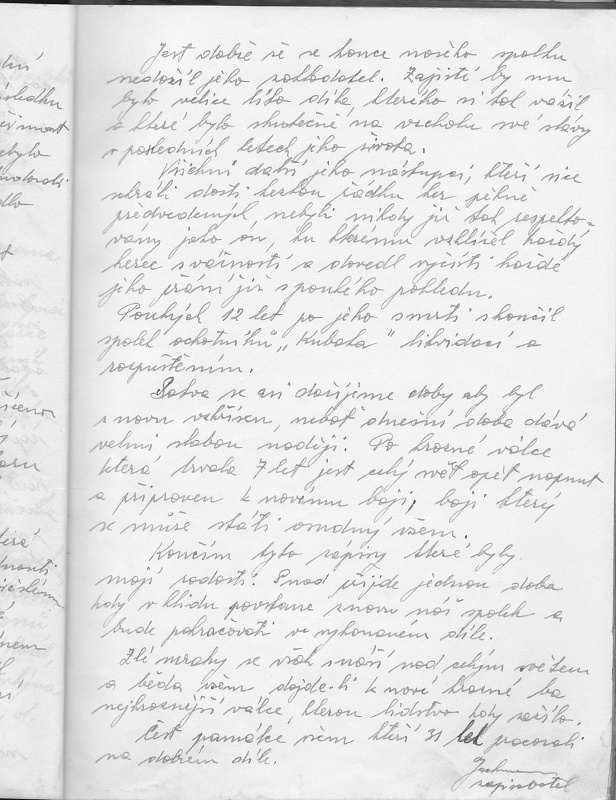 lní
sledku
nebylo
dlo
Jest dobře že se konce našeho spolku
nedožil jeho zakladatel. Zajisté by mu
bylo velice líto díla, kterého si tak vážil
a které bylo skutečně na vrcholu své slávy
v posledních letech jeho života.
Všichni další jeho nástupci, kteří sice
sehráli dosti kerkou řádku her pěkně
předvedených, nebyli nikdy již tak respekto-
vány jako on, ku kterému vzhlížel každý
herec s vážností a dovedl vyčísti každé
jeho přání již s pouhého pohledu.
Pouhých 12 let po jeho smrti skončil
spolek ochotníků „Kubata" likvidací a
rozpuštěním.
Sotva se asi dožijeme doby aby byl
znovu vzkříšen, neboť dnešní doba dává
velmi slabou naději. Po hrozné válce
která trvala 7 let jest celý svět opět napnut
a připraven k novému boji, boji který
se může státi osudný všem.
Končím tyto zápisy které byly
mojí radostí. Snad přijde jednou doba
kdy v klidu povstane znovu náš spolek a
bude pokračovati ve vykonaném díle.
Zlé mraky se však snáší nad celým světem
a běda všem dojde-li k nové hrozné ba
nejhroznější válce, kterou lidstvo kdy zažilo.
Čest památce všem kteří 31 let pracovali
na dobrém díle.
zapisovatel